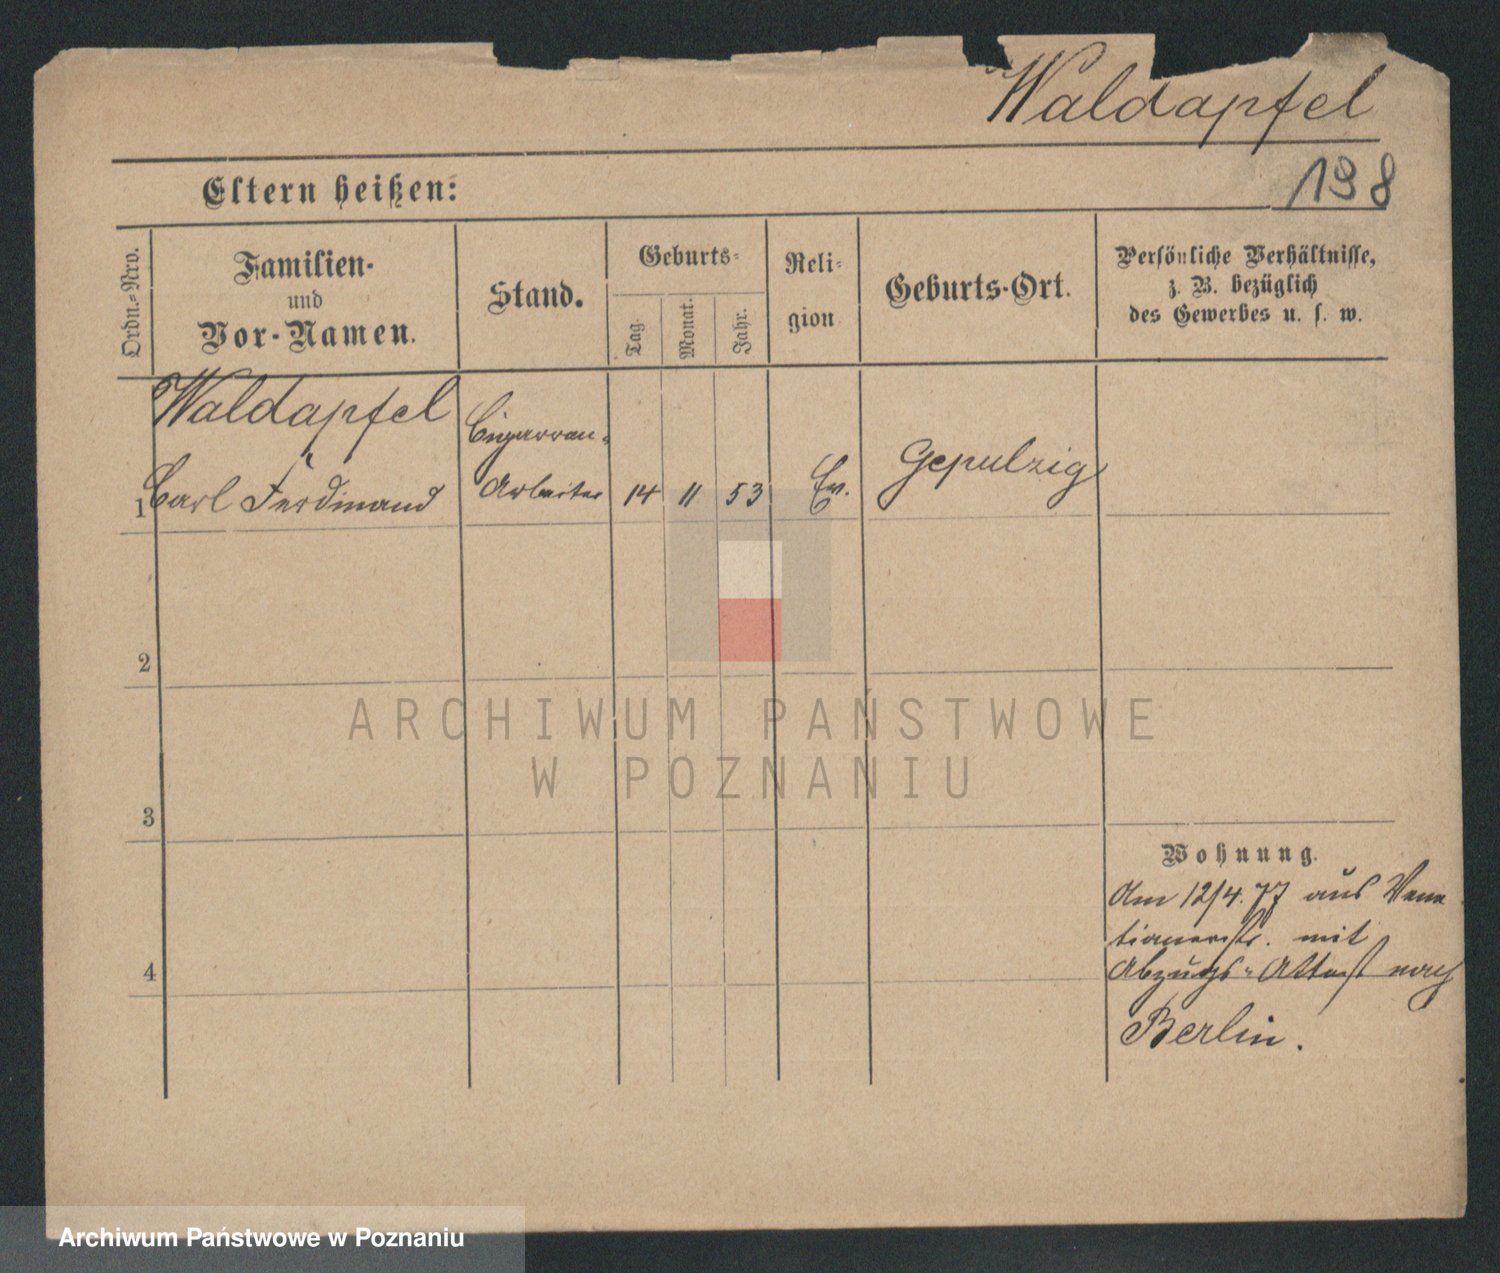 Waldapfel
Eltern heißen:
198
Ordn.-Nro.
Familien-
und
Vor-Namen.
Stand.
Geburts-
Tag.
Monat.
Jahr.
Reli-
gion
Geburts-Ort.
Persönliche Verhältnisse,
z. B. bezüglich
des Gewerbes u. s. w.
Waldapfel
Carl Ferdinand
Cigarren-
Arbeiter
14
11
53
Ev.
Gepulzig
1
2
3
4
Wohnung.
Am 12/4. 77 aus Vene
tianerstr. mit
Abzugs-Attest nach
Berlin.
ARCHIWUM PAŃSTWOWE
W POZNANIU
Archiwum Państwowe w Poznaniu